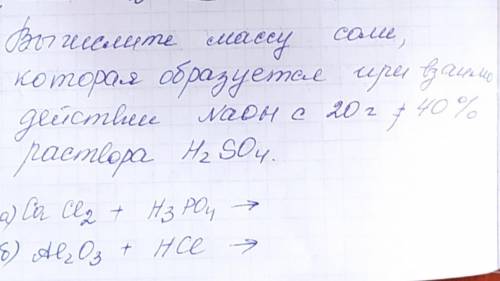 Вычислите массу соли,
которая образуется при взаимо
действии NaOH с 20 г 40%
раствора H2SO4.
а) CaCl2 + H3PO4 →
б) Al2O3 + HCl →